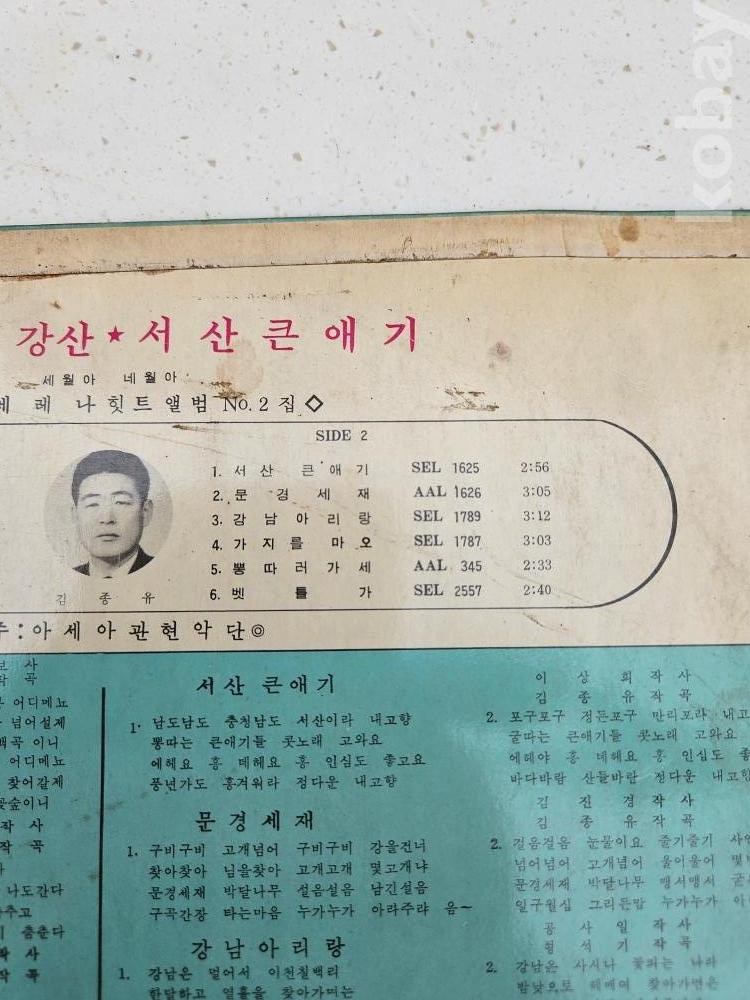 kobay
강산★서산큰애기
세월아 네월아
레나힛트앨범 No.2집◇
SIDE 2
1. 서산 큰애기 SEL 1625 2:56
2. 문경세재 AAL 1626 3:05
3. 강남아리랑 SEL 1789 3:12
4. 가지를 마오 SEL 1787 3:03
5. 뽕따러가세 AAL 345 2:33
6. 벳틀가 SEL 2557 2:40
김종유
주:아세아관현악단◎
서산 큰애기
이상희 작사
김종유 작곡
1. 남도남도 충청남도 서산이라 내고향
뽕따는 큰애기들 콧노래 고와요
에헤요 흥 데헤요 흥 인심도 좋고요
풍년가도 흥겨워라 정다운 내고향
2. 포구포구 정든포구 만리포라 내고
굴따는 큰애기들 콧노래 고와요
에헤야 흥 데헤요 흥 인심도 좋
바다바람 산들바람 정다운 내고향
문경세재
김진경 작사
김종유 작곡
1. 구비구비 고개넘어 구비구비 강을건너
찾아찾아 님을찾아 고개고개 몇고개냐
문경세재 박달나무 설음설음 남긴설음
구곡간장 타는마음 누가누가 아랴주랴 음~
2. 걸음걸음 눈물이요 줄기줄기
넘어넘어 고개넘어 울이울어
문경세재 박달나무 맹서맹서
일구월심 그리든맘 누가누가
강남아리랑
공사일 작사
형석기 작곡
1. 강남은 멀어서 이천칠백리
한달하고 열흘을 찾아가며는
2. 강남은 사시나 꽃피는 나라
밤낮으로 헤메여 찾아가면은
어디메뇨
넘어설제
백곡 이니
어디메뇨
찾어갈제
꽃숲이니
작사
작곡
나도간다
춤춘다
작사
작곡